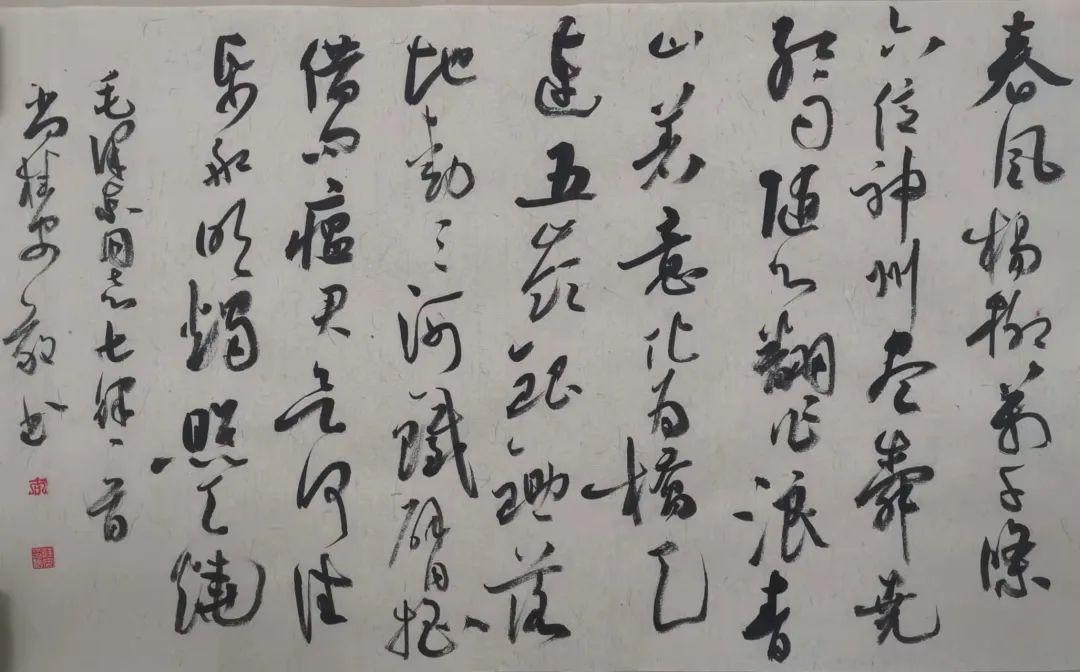 春風楊柳萬千條
六億神州尽舜堯
紅雨随心翻作浪青
山着意化为橋天
連五岭銀鋤落
地動三河鐵臂摇
借问瘟君欲何往
纸船明燭照天燒
毛泽东同志七律一首
尚桂 敬书